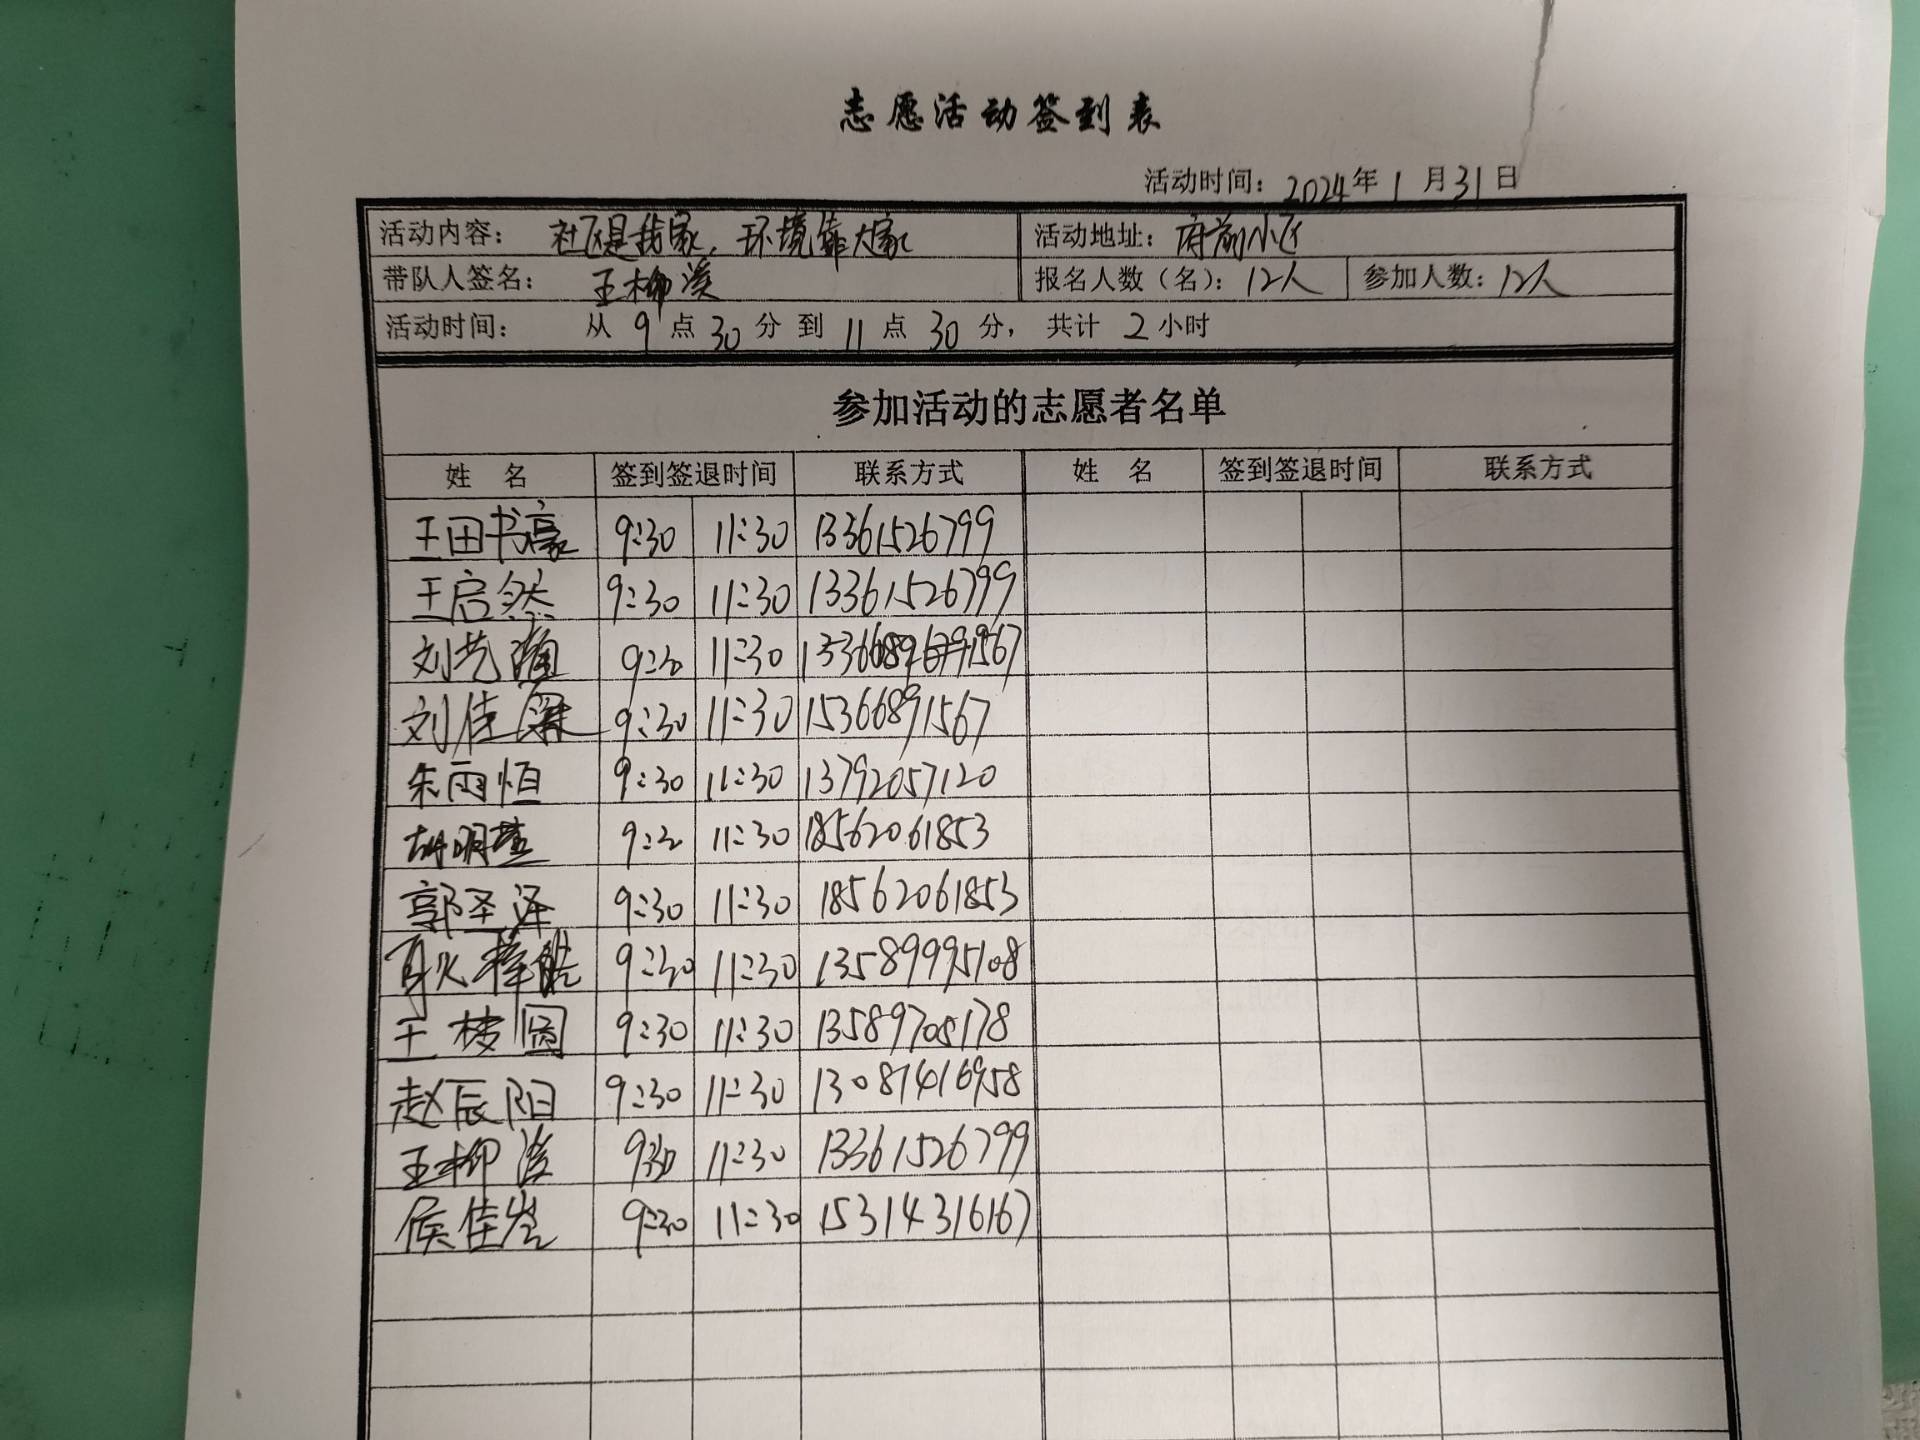 志愿活动签到表
活动时间：2024年1月31日
活动内容：社区是我家，环境靠大家 活动地址：府前小区
带队人签名：王柳溪 报名人数（名）：12人 参加人数：12人
活动时间： 从9点30分到11点30分， 共计2小时
参加活动的志愿者名单
姓 名 签到签退时间 联系方式 姓 名 签到签退时间 联系方式
王田书豪 9:30 11:30 13361526799
王启然 9:30 11:30 13361526799
刘艺 9:30 11:30
刘佳 9:30 11:30 15366891567
朱雨恒 9:30 11:30 13792057120
胡明 11:30 18562061853
郭圣泽 9:30 11:30 18562061853
9:30 11:30 13589995108
王梭圆 9:30 11:30 13589705178
赵辰阳 9:30 11:30 13087416958
王柳溪 930 11:30 13361526799
侯佳岩 9:30 11:30 15314316167